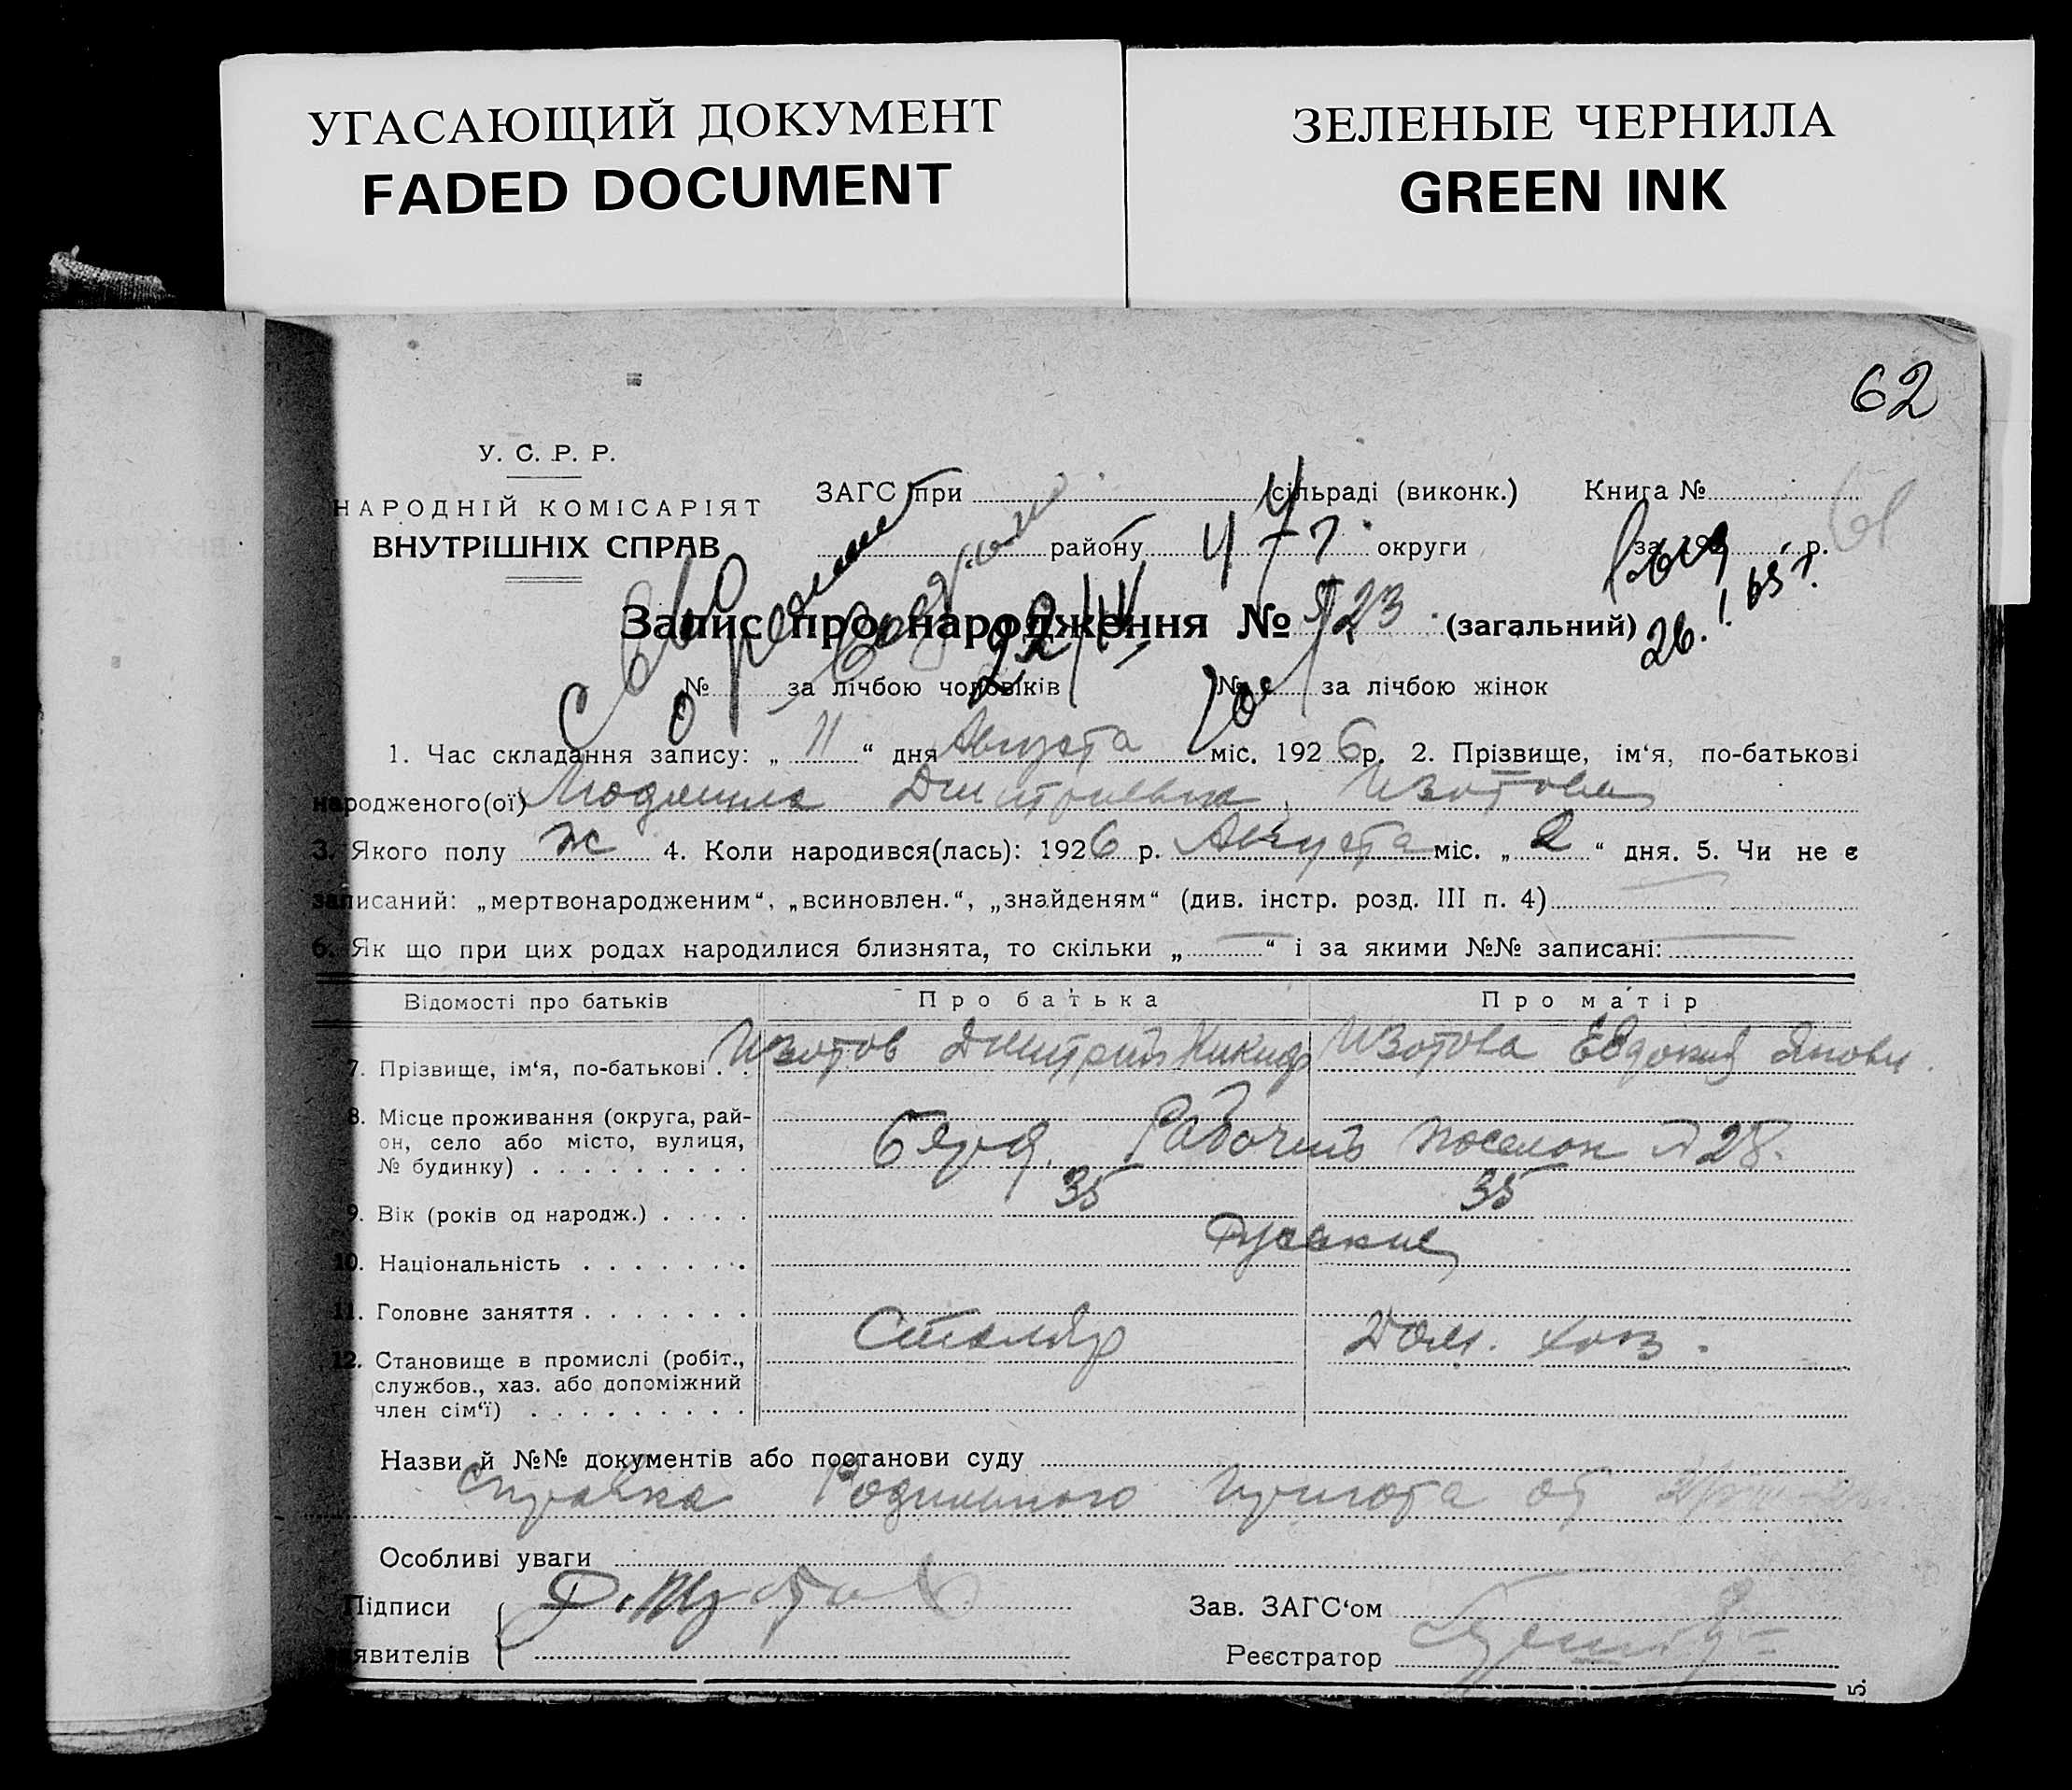 УГАСАЮЩИЙ ДОКУМЕНТ
FADED DOCUMENT
ЗЕЛЕНЫЕ ЧЕРНИЛА
GREEN INK
62
61
У. С. Р. Р.
НАРОДНІЙ КОМІСАРІЯТ
ВНУТРІШНІХ СПРАВ
ЗАГС при сільраді (виконк.) Книга №
району округи за 192 р.
26. I. 65 г.
Запис про народження № 523 (загальний)
№ за лічбою чоловіків № за лічбою жінок
1. Час складання запису: „ 11 “ дня Августа міс. 1926 р. 2. Прізвище, ім‘я, по-батькові
народженого(ої) Людмила Дмитриевна Изотова
3. Якого полу ж 4. Коли народився(лась): 1926 р. Августа міс. „ 2 “ дня. 5. Чи не є
записаний: „мертвонародженим“, „всиновлен.“, „знайденям“ (див. інстр. розд. III п. 4)
6. Як що при цих родах народилися близнята, то скільки „ — “ і за якими №№ записані: —
Відомості про батьків Про батька Про матір
7. Прізвище, ім‘я, по-батькові . . Изотов Дмитрий Никиф Изотова Евдокия
8. Місце проживання (округа, рай-
он, село або місто, вулиця,
№ будинку) . . . . . . . . . Рабочий поселок № 28.
9. Вік (років од народж.) . . . . 35 35
10. Національність . . . . . . . Русские
11. Головне заняття . . . . . . . Столяр Дом. хоз.
12. Становище в промислі (робіт.,
службов., хаз. або допоміжний
член сім‘ї) . . . . . . . . .
Назви й №№ документів або постанови суду
Справка Родильного приюта от
Особливі уваги
Підписи Д. Изотов Зав. ЗАГС‘ом
явителів Реєстратор
5.